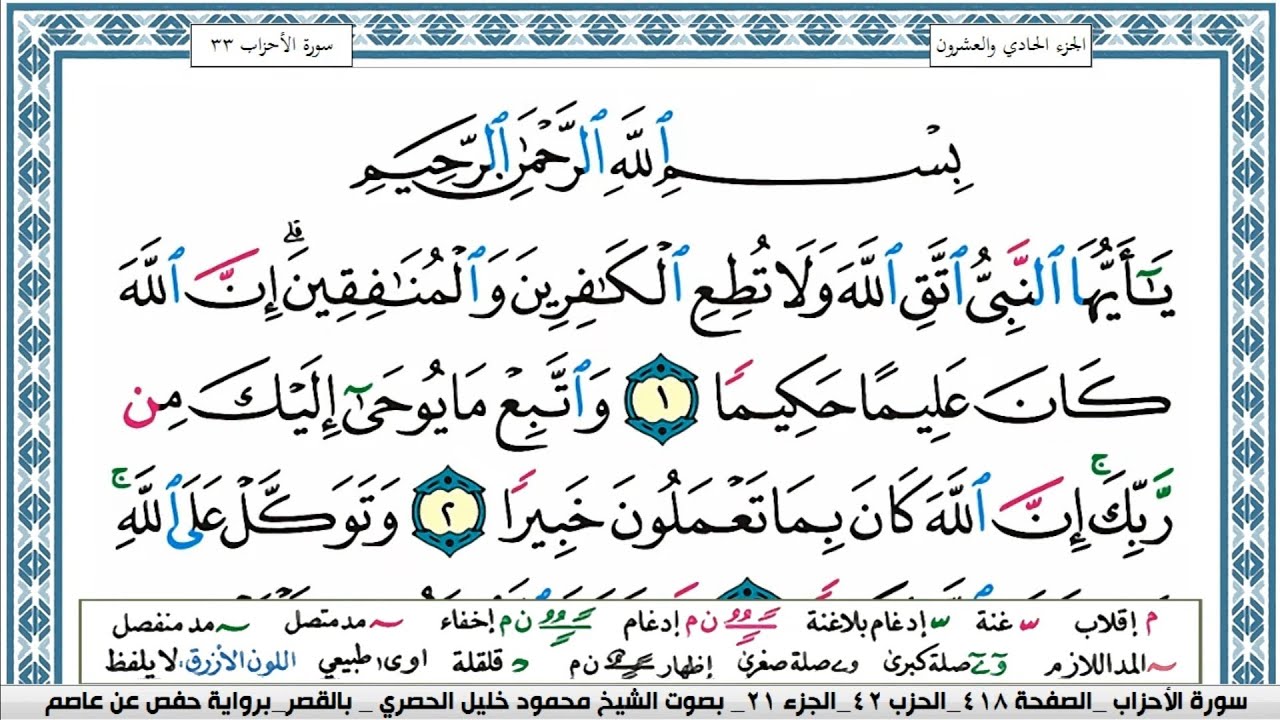 الجزء الحادي والعشرون
سورة الأحزاب ٣٣
بِسْمِ ٱللَّهِ ٱلرَّحْمَٰنِ ٱلرَّحِيمِ
يَٰٓأَيُّهَا ٱلنَّبِىُّ ٱتَّقِ ٱللَّهَ وَلَا تُطِعِ ٱلْكَٰفِرِينَ وَٱلْمُنَٰفِقِينَ ۗ إِنَّ ٱللَّهَ
كَانَ عَلِيمًا حَكِيمًا ١ وَٱتَّبِعْ مَا يُوحَىٰٓ إِلَيْكَ مِن
رَّبِّكَ ۚ إِنَّ ٱللَّهَ كَانَ بِمَا تَعْمَلُونَ خَبِيرًا ٢ وَتَوَكَّلْ عَلَى ٱللَّهِ ۚ
م إقلاب غنة إدغام بلاغنة ن م إدغام ن م إخفاء مد متصل مد منفصل
المد اللازم صلة كبرى صلة صغرى إظهار ن م قلقلة اوى ا طبيعي اللون الأزرق: لا يلفظ
سورة الأحزاب _الصفحة ٤١٨_الحزب ٤٢_الجزء ٢١_ بصوت الشيخ محمود خليل الحصري _ بالقصر_برواية حفص عن عاصم